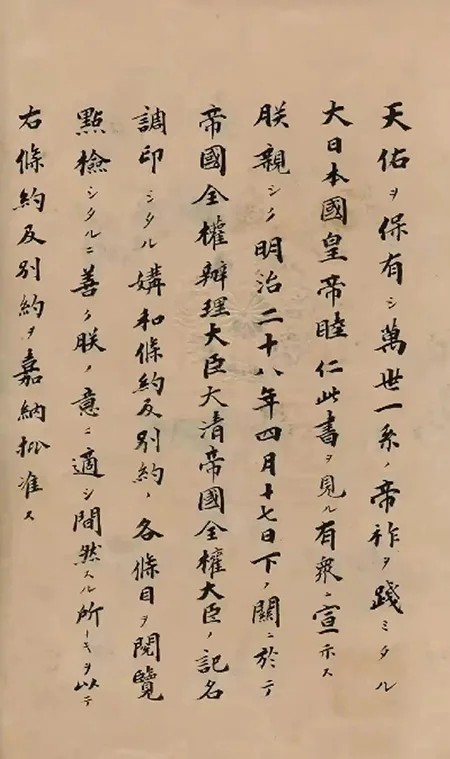 天佑ヲ保有シ萬世一系ノ帝祚ヲ踐ミタル
大日本國皇帝睦仁此書ヲ見ル有衆ニ宣示ス
朕親シク明治二十八年四月十七日下ノ關ニ於テ
帝國全權辦理大臣大清帝國全權大臣ノ記名
調印シタル媾和條約及別約ノ各條目ヲ閱覽
點檢シタルニ善ク朕ノ意ニ適シ間然スル所ナキヲ以テ
右條約及別約ヲ嘉納批准ス